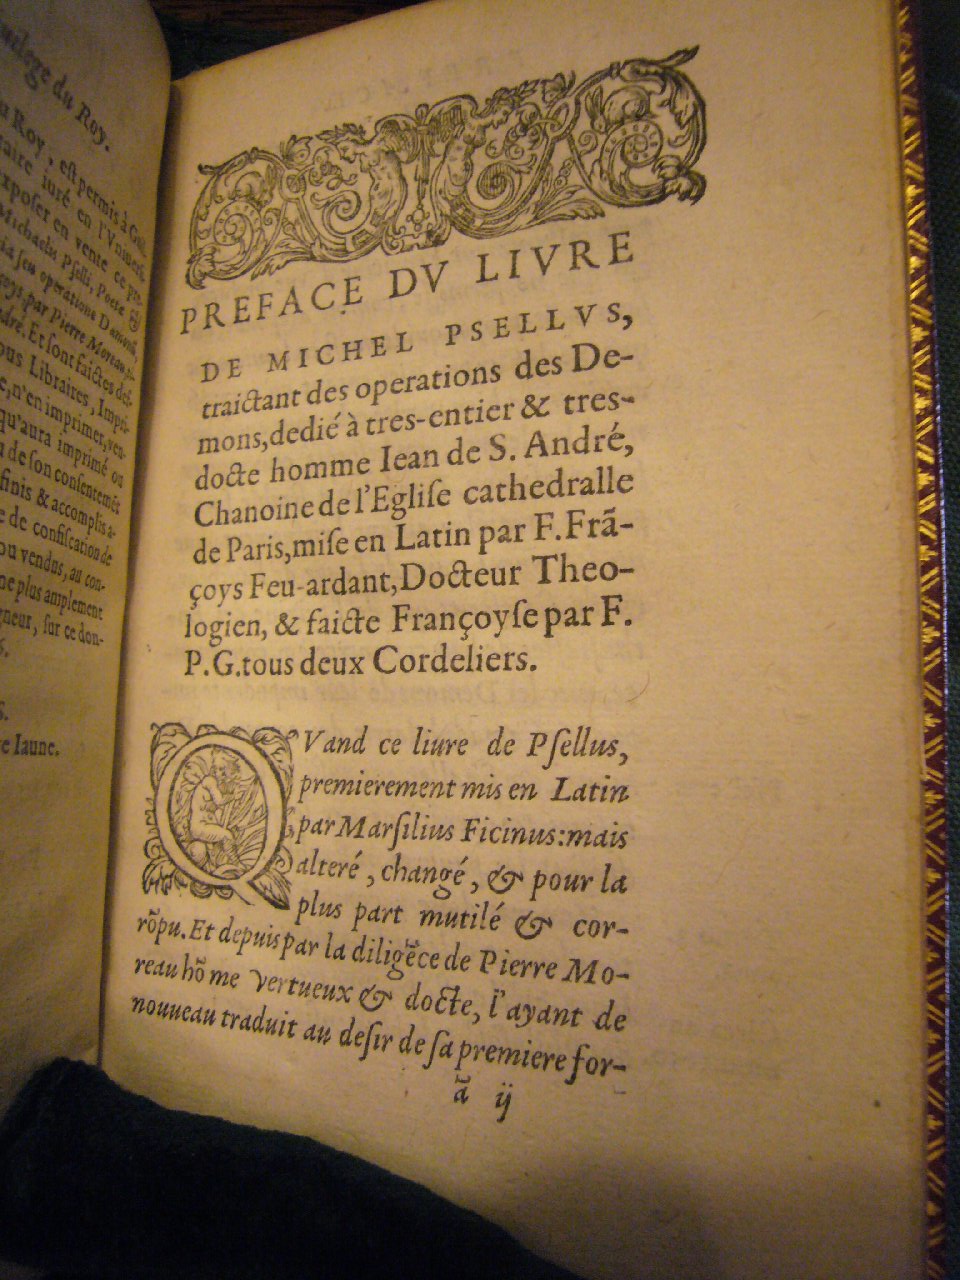 du Roy.
Roy, est permis à Guil
iuré en l'Vniuersi-
exposer en vente ce pre-
Michaelis Pselli, Poete &
seu operatione Dæmonũ,
par Pierre Moreau,
Et sont faictes def-
Libraires, Impri-
n'en imprimer, ven-
qu'aura imprimé ou
de son consentemẽt
finis & accomplis a-
de confiscation de
ou vendus, au con-
plus amplement
sur ce don-
Iaune.
PREFACE DV LIVRE
DE MICHEL PSELLVS,
traictant des operations des De-
mons, dedié à tres-entier & tres-
docte homme Iean de S. André,
Chanoine de l'Eglise cathedralle
de Paris, mise en Latin par F. Frã-
çoys Feu-ardant, Docteur Theo-
logien, & faicte Françoyse par F.
P. G. tous deux Cordeliers.
QVand ce liure de Psellus,
premierement mis en Latin
par Marsilius Ficinus: mais
alteré, changé, & pour la
plus part mutilé & cor-
rõpu. Et depuis par la diligẽce de Pierre Mo-
reau hõme vertueux & docte, l'ayant de
nouueau traduit au desir de sa premiere for-
ã ij